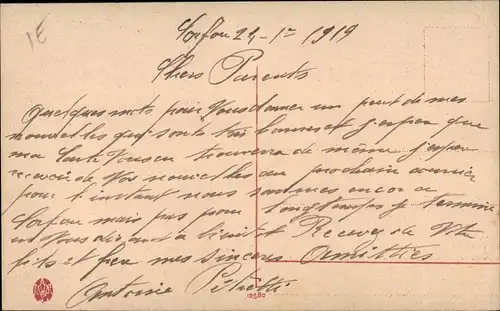 1E
Corfou 24-1er 1919
Chers Parents
quelques mots pour Vous donner un peut de mes
nouvelles qui sont très bonnes et j'espère que
ma Carte Vous en trouvera de même j'espère
recevoir de Vos nouvelles au prochain courrier
pour l'instant nous sommes encor a
Corfou mais pas pour longtemps je termine
en Vous disant a bientôt Recevez de Votre
fils et frère mes sincères Amitiées
Antoine
12580